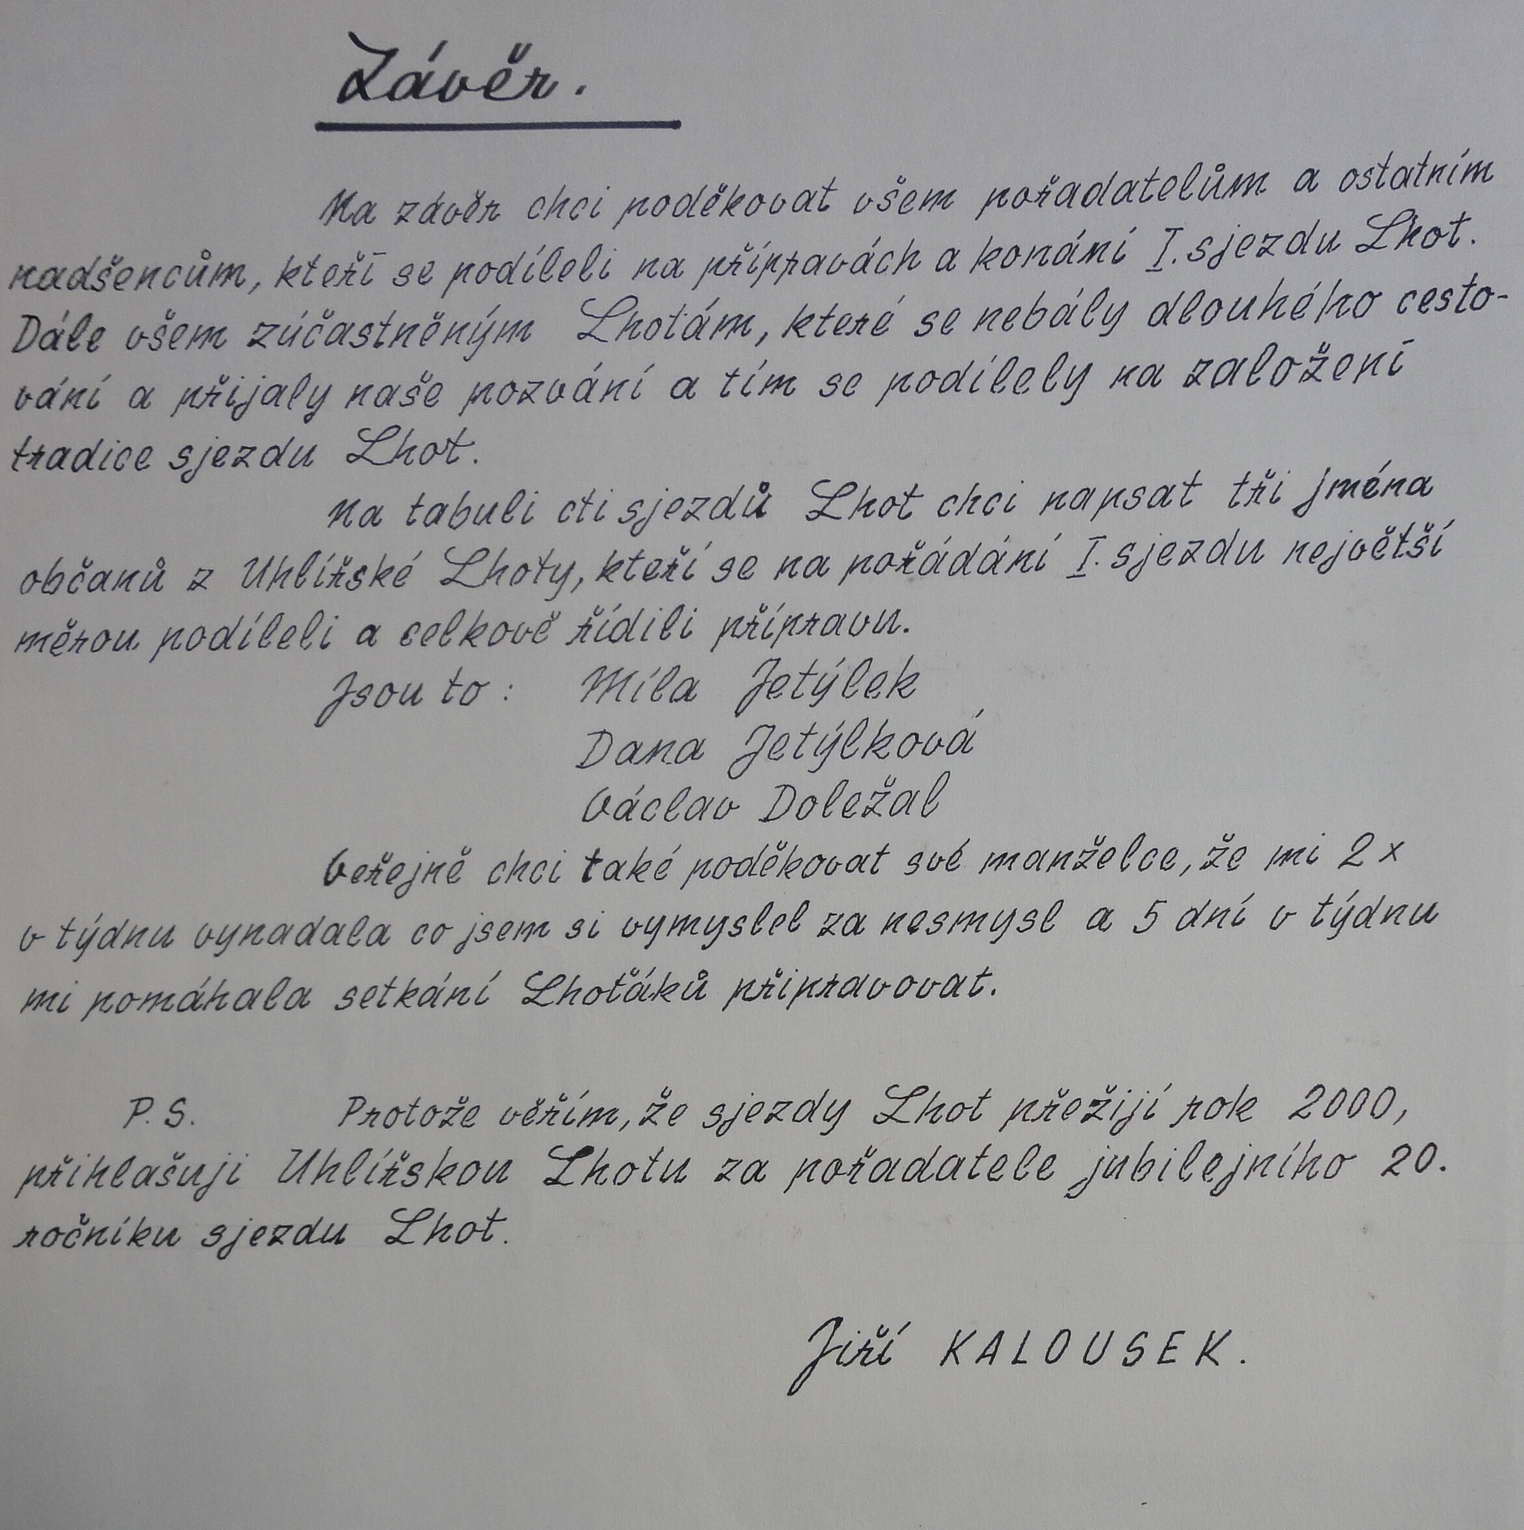 Závěr.
Na závěr chci poděkovat všem pořadatelům a ostatním
nadšencům, kteří se podíleli na přípravách a konání I. sjezdu Lhot.
Dále všem zúčastněným Lhotám, které se nebály dlouhého cesto-
vání a přijaly naše pozvání a tím se podílely na založení
tradice sjezdu Lhot.
Na tabuli cti sjezdů Lhot chci napsat tři jména
občanů z Uhlířské Lhoty, kteří se na pořádání I. sjezdu největší
měrou podíleli a celkově řídili přípravu.
Jsou to : Míla Jetýlek
Dana Jetýlková
Václav Doležal
Veřejně chci také poděkovat své manželce, že mi 2 x
v týdnu vynadala co jsem si vymyslel za nesmysl a 5 dní v týdnu
mi pomáhala setkání Lhoťáků připravovat.
P. S. Protože věřím, že sjezdy Lhot přežijí rok 2000,
přihlašuji Uhlířskou Lhotu za pořadatele jubilejního 20.
ročníku sjezdu Lhot.
Jiří KALOUSEK.